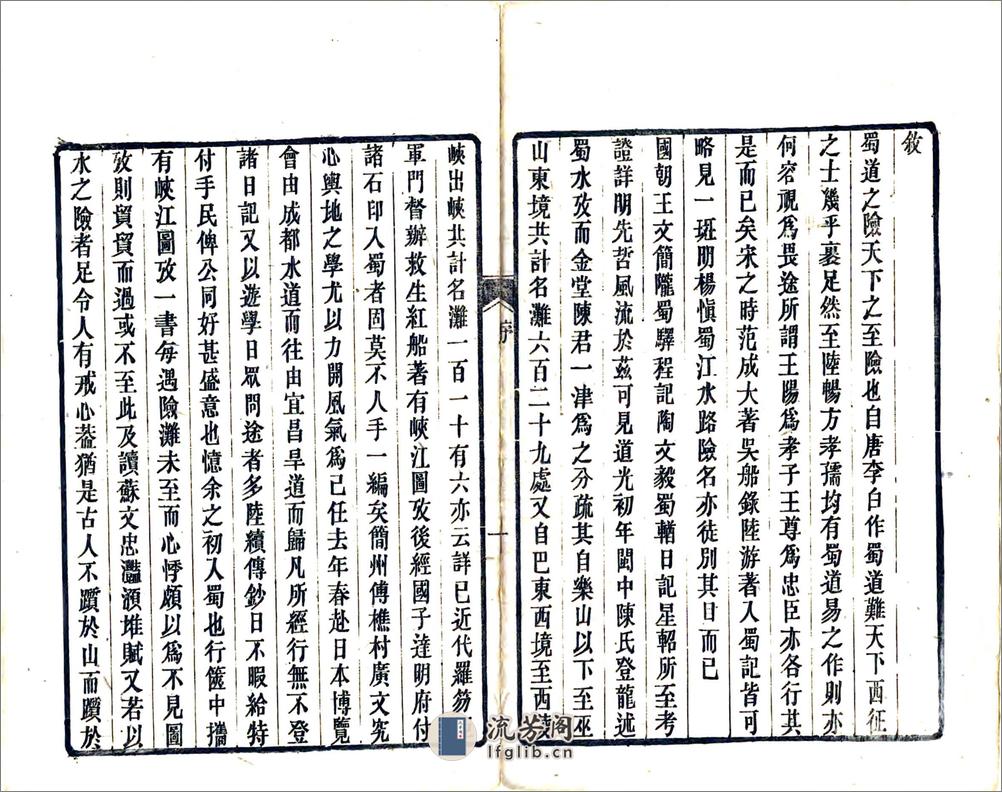 敘
蜀道之險天下之至險也自唐李白作蜀道難天下西征
之士幾乎裹足然至陸暢方孝孺均有蜀道易之作則亦
何容視爲畏途所謂王陽爲孝子王尊爲忠臣亦各行其
是而已矣宋之時范成大著吳船錄陸游著入蜀記皆可
略見一斑明楊愼蜀江水路險名亦徒別其目而已
國朝王文簡隴蜀驛程記陶文毅蜀輶日記星軺所至考
證詳明先哲風流於茲可見道光初年閬中陳氏登龍述
蜀水攷而金堂陳君一津爲之分疏其自樂山以下至巫
山東境共計名灘六百二十九處又自巴東西境至西陵
序
一
峽出峽共計名灘一百一十有六亦云詳已近代羅笏
軍門督辦救生紅船著有峽江圖攷後經國子達明府付
諸石印入蜀者固莫不人手一編矣簡州傅樵村廣文究
心輿地之學尤以力開風氣爲己任去年春赴日本博覽
會由成都水道而往由宜昌旱道而歸凡所經行無不登
諸日記又以遊學日眾問途者多陸續傳鈔日不暇給特
付手民俾公同好甚盛意也憶余之初入蜀也行篋中攜
有峽江圖攷一書每遇險灘未至而心悸頗以爲不見圖
攷則貿貿而過或不至此及讀蘇文忠灩澦堆賦又若以
水之險者足令人有戒心葢猶是古人不躓於山而躓於
流芳阁
lfglib.cn